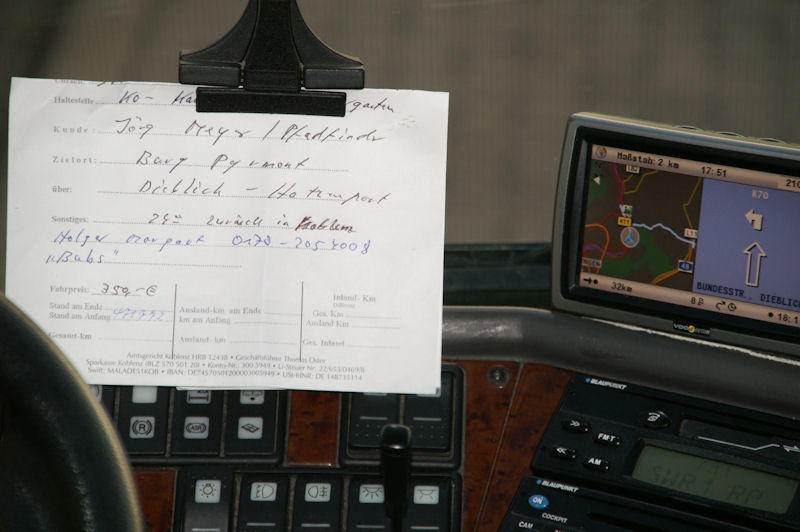 Haltestelle KO- Ka rgarten
Kunde: Jörg Meyer / Pfadfinder
Zielort: Burg Pyrmont
über: Dieblich - Hatzenport
Sonstiges: 24ºº zurück in Koblenz
Holger 0170 - 205 4008
"Bubs"
Fahrpreis: 350,- €
Stand am Ende
Stand am Anfang
Gesamt-km
Ausland-km am Ende
km am Anfang
Inland- Km
Ges. Km
Ausland Km
Ges. Inland
Amtsgericht Koblenz HRB 12438 • Geschäftsführer Thomas Oster
Sparkasse Koblenz (BLZ 570 501 20) • Konto-Nr.: 300 5949 • U-Steuer Nr. 22/653/0469/8
Swift: MALADE51KOB • IBAN: DE74570501200003005949 • USt-IdNR. DE 148733314
Maßstab: 2 km 17:51 210
L82
K70
411
L11
48
NGEN
32km
BUNDESSTR., DIEBLIC
8
VDO
BLAUPUNKT
FM•T
AM
SWR1 RP
BLAUPUNKT
ON
COCKPIT
CAM
(R)
ASR